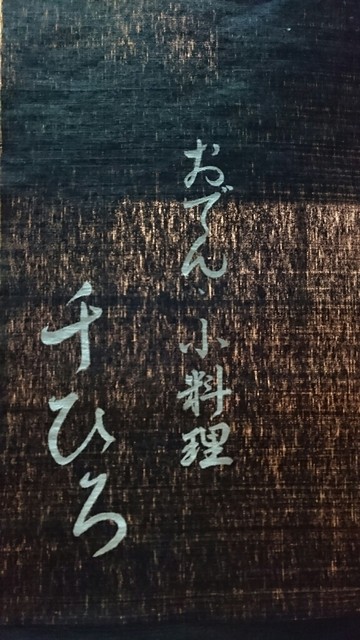 おでん・小料理
千ひろ